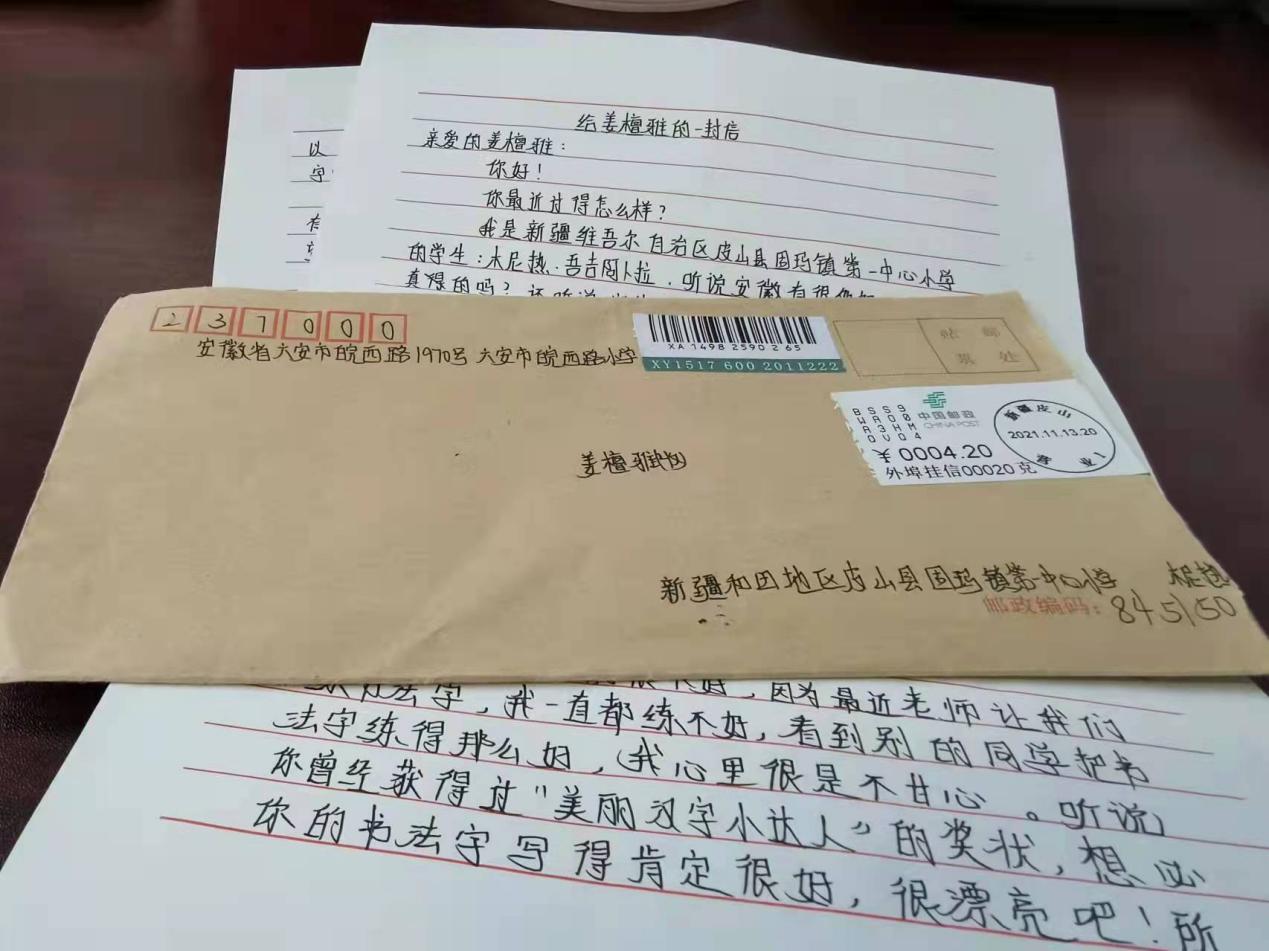 给姜檀雅的一封信
亲爱的姜檀雅：
你好！
你最近过得怎么样？
我是新疆维吾尔自治区皮山县固玛镇第一中心小学
的学生：木尼热·吾吉阿卜拉．听说安徽有很
真得的吗？还听说
以
字
237000
安徽省六安市皖西路1970号 六安市皖西路小学
XA 1498 2590 2 65
XY1517 600 2011222
贴 邮
票 处
BSS9
WA00
A3HM
OVO4
中国邮政
CHINA POST
￥0004.20
外埠挂信00020克
新疆皮山
2021.11.13.20
营 业 1
姜檀雅
新疆和田地区皮山县固玛镇第一中心小学 木尼热
邮政编码：845150
不好，因为最近老师让我们
法字，我一直都练不好，看到别的同学把书
法字练得那么好，我心里很是不甘心。听说
你曾经获得过“美丽汉字小达人”的奖状，想必
你的书法字写得肯定很好，很漂亮吧！所